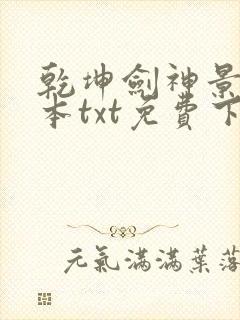 乾坤劍神景
本txt免費下
元氣滿滿葉落